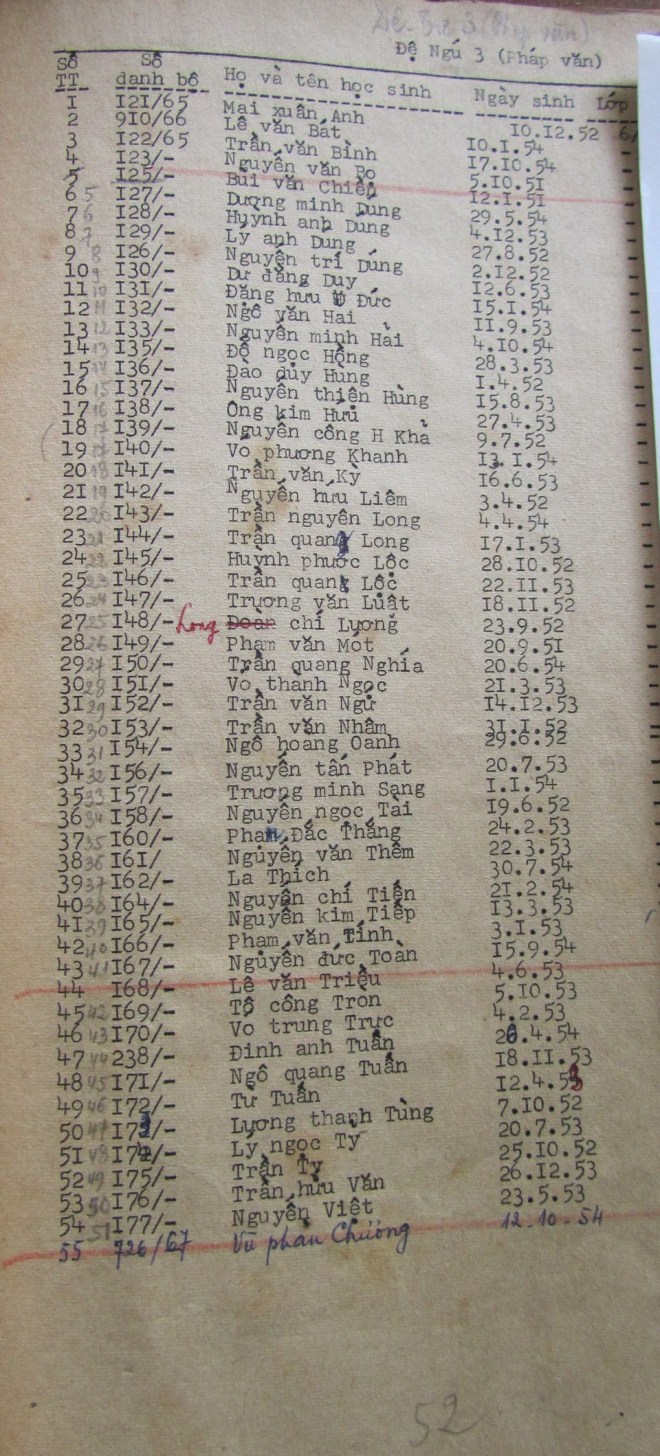 Đệ Ngũ 3 (Pháp văn)
Số TT Số danh bộ Họ và tên học sinh Ngày sinh Lớp
1 121/65 Mai xuân Anh 10.12.52 6/
2 910/66 Lê văn Bát 10.1.54
3 122/65 Trần văn Bình 17.10.54
4 123/- Nguyễn văn Bo 5.10.51
5 125/- Bùi văn Chiến 12.1.51
6 5 127/- Dương minh Dung 29.5.54
7 6 128/- Huỳnh anh Dung 4.12.53
8 7 129/- Lý anh Dung 27.8.52
9 8 126/- Nguyễn trí Dũng 2.12.52
10 9 130/- Dư đăng Duy 12.6.53
11 10 131/- Đăng hưu Đức 15.1.54
12 11 132/- Ngô văn Hai 11.9.53
13 12 133/- Nguyễn minh Hải 4.10.54
14 13 135/- Đỗ ngọc Hồng 28.3.53
15 14 136/- Đào dủy Hùng 1.4.52
16 15 137/- Nguyễn thiện Hùng 15.8.53
17 16 138/- Ông kim Hưu 27.4.53
18 17 139/- Nguyễn công H Khả 9.7.52
19 17 140/- Vo phương Khanh 13.1.54
20 18 141/- Trần văn Kỳ 16.6.53
21 19 142/- Nguyễn hưu Liêm 3.4.52
22 20 143/- Trần nguyên Long 4.4.54
23 21 144/- Trần quang Long 17.1.53
24 22 145/- Huỳnh phước Lộc 28.10.52
25 23 146/- Trần quang Lộc 22.11.53
26 24 147/- Trương văn Luật 18.11.52
27 25 148/- Long Đoàn chí Lương 23.9.52
28 26 149/- Phạm văn Một 20.9.51
29 27 150/- Trần quang Nghía 20.6.54
30 28 151/- Vo thành Ngọc 21.3.53
31 29 152/- Trần văn Ngữ 14.12.53
32 30 153/- Trần văn Nhâm 31.1.52
33 31 154/- Ngô hoang Oanh 29.6.52
34 32 156/- Nguyễn tấn Phát 20.7.53
35 33 157/- Trương minh Sang 1.1.54
36 34 158/- Nguyễn ngọc Tài 19.6.52
37 35 160/- Phan Đắc Thắng 24.2.53
38 36 161/ Nguyễn văn Thêm 22.3.53
39 37 162/- La Thích 30.7.54
40 38 164/- Nguyễn chí Tiến 21.2.54
41 39 165/- Nguyễn kim Tiếp 13.3.53
42 40 166/- Phạm văn Tính 3.1.53
43 41 167/- Nguyễn đức Toàn 15.9.54
44 168/- Lê văn Triệu 4.6.53
45 42 169/- Tô công Tron 5.10.53
46 43 170/- Vo trung Trực 4.2.53
47 44 238/- Đinh anh Tuấn 20.4.54
48 45 171/- Ngô quang Tuấn 18.11.53
49 46 172/- Tư Tuấn 12.4.53
50 47 173/- Lương thanh Tùng 7.10.52
51 48 174/- Lý ngọc Tỷ 20.7.53
52 49 175/- Trần Tỵ 25.10.52
53 50 176/- Trần hưu Văn 26.12.53
54 51 177/- Nguyễn Việt 23.5.53
55 726/67 Vũ phan Chương 12.10.54
52